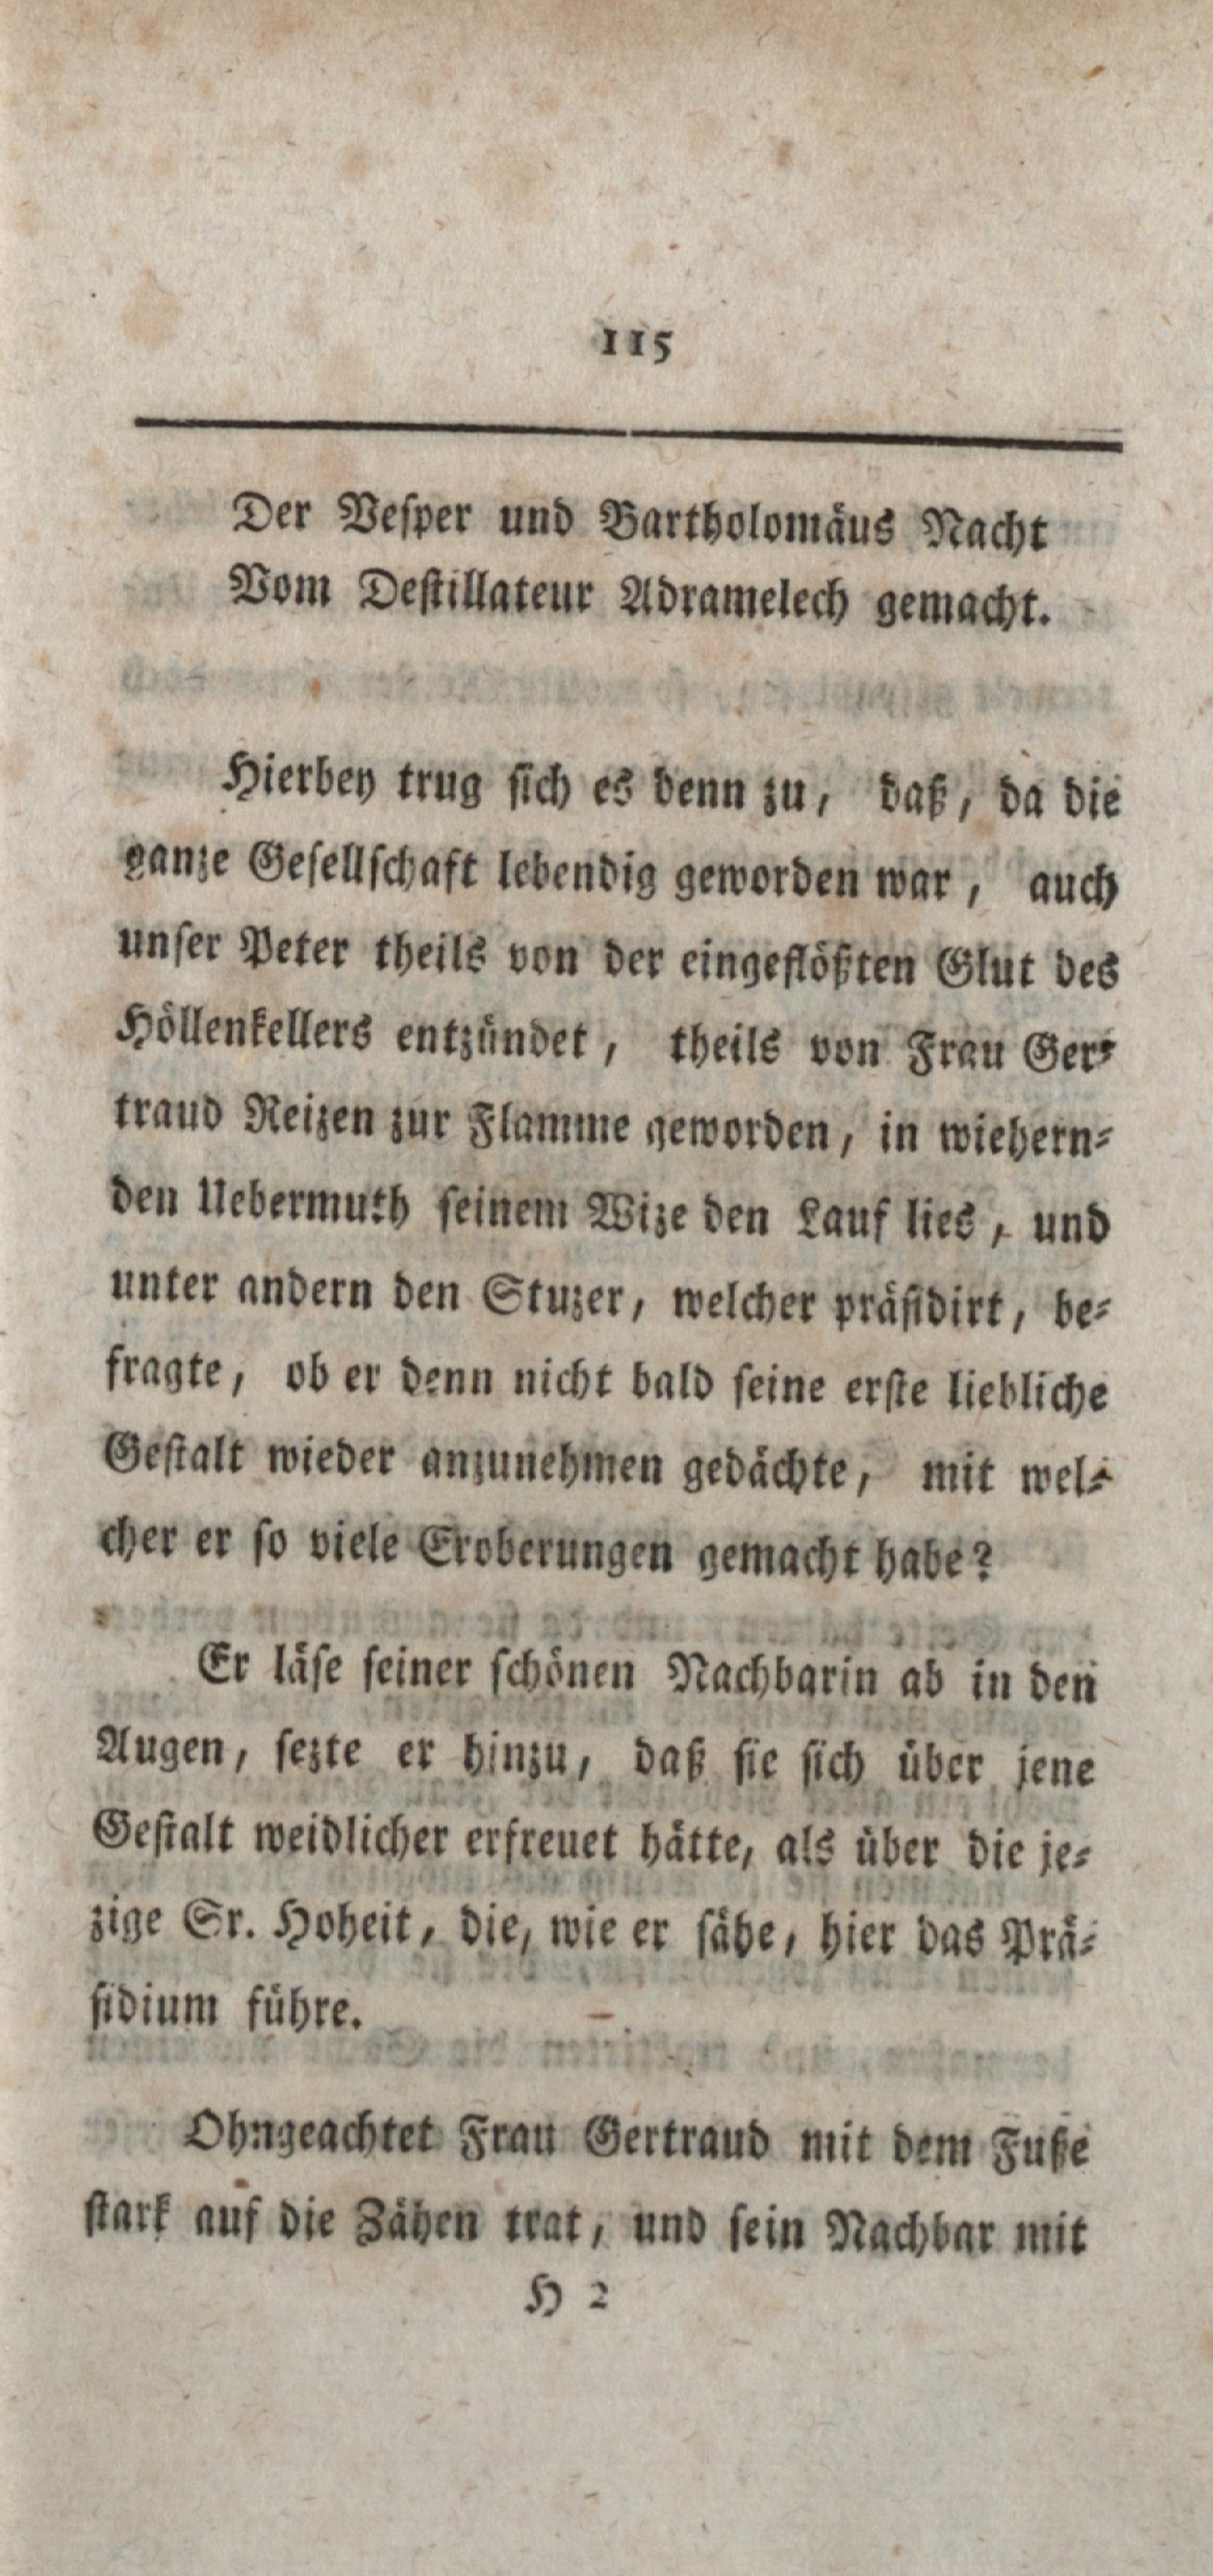 115
Der Vesper und Bartholomäus Nacht
Vom Destillateur Adramelech gemacht.
Hierbey trug sich es denn zu, daß, da die
ganze Gesellschaft lebendig geworden war, auch
unser Peter theils von der eingeflößten Glut des
Höllenkellers entzündet, theils von Frau Ger-
traud Reizen zur Flamme geworden, in wiehern-
den Uebermuth seinem Wize den Lauf lies, und
unter andern den Stuzer, welcher präsidirt, be-
fragte, ob er denn nicht bald seine erste liebliche
Gestalt wieder anzunehmen gedächte, mit wel-
cher er so viele Eroberungen gemacht habe?
Er läse seiner schönen Nachbarin ab in den
Augen, sezte er hinzu, daß sie sich über jene
Gestalt weidlicher erfreuet hätte, als über die je-
zige Sr. Hoheit, die, wie er sähe, hier das Prä-
sidium führe.
Ohngeachtet Frau Gertraud mit dem Fuße
stark auf die Zähen trat, und sein Nachbar mit
H 2